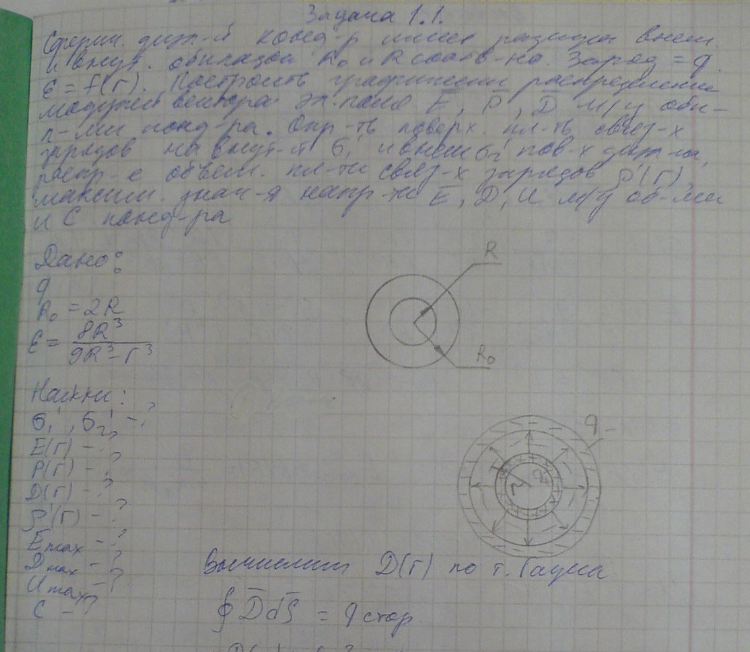 Задача 1.1.
Сферич. диэл-й конд-р имеет радиусы внеш
и внут. обкладок R₀ и R соотв-но. Заряд = q.
ε = f(r). Построить графически распределения
модулей вектора эл. поля E̅, P̅, D̅ м/у обк-
л-ми конд-ра. Опр-ть поверх. пл-ть связ-х
зарядов на внут-й σ₁' и внеш σ₂' пов-х диэл-ка,
распр-е объём. пл-ти связ-х зарядов ρ'(r),
максим. знач-я напр-ти E, D, U м/у об-ми
и C конд-ра
Дано:
q
R₀ = 2R
ε = 8R³ / 9R³ - r³
R
R₀
Найти:
σ₁', σ₂' - ?
E(r) - ?
P(r) - ?
D(r) - ?
ρ'(r) - ?
Emax - ?
Dmax - ?
Umax - ?
C - ?
q-
r
Вычислим D(r) по т. Гаусса
∮D̅dS̅ = q стор.